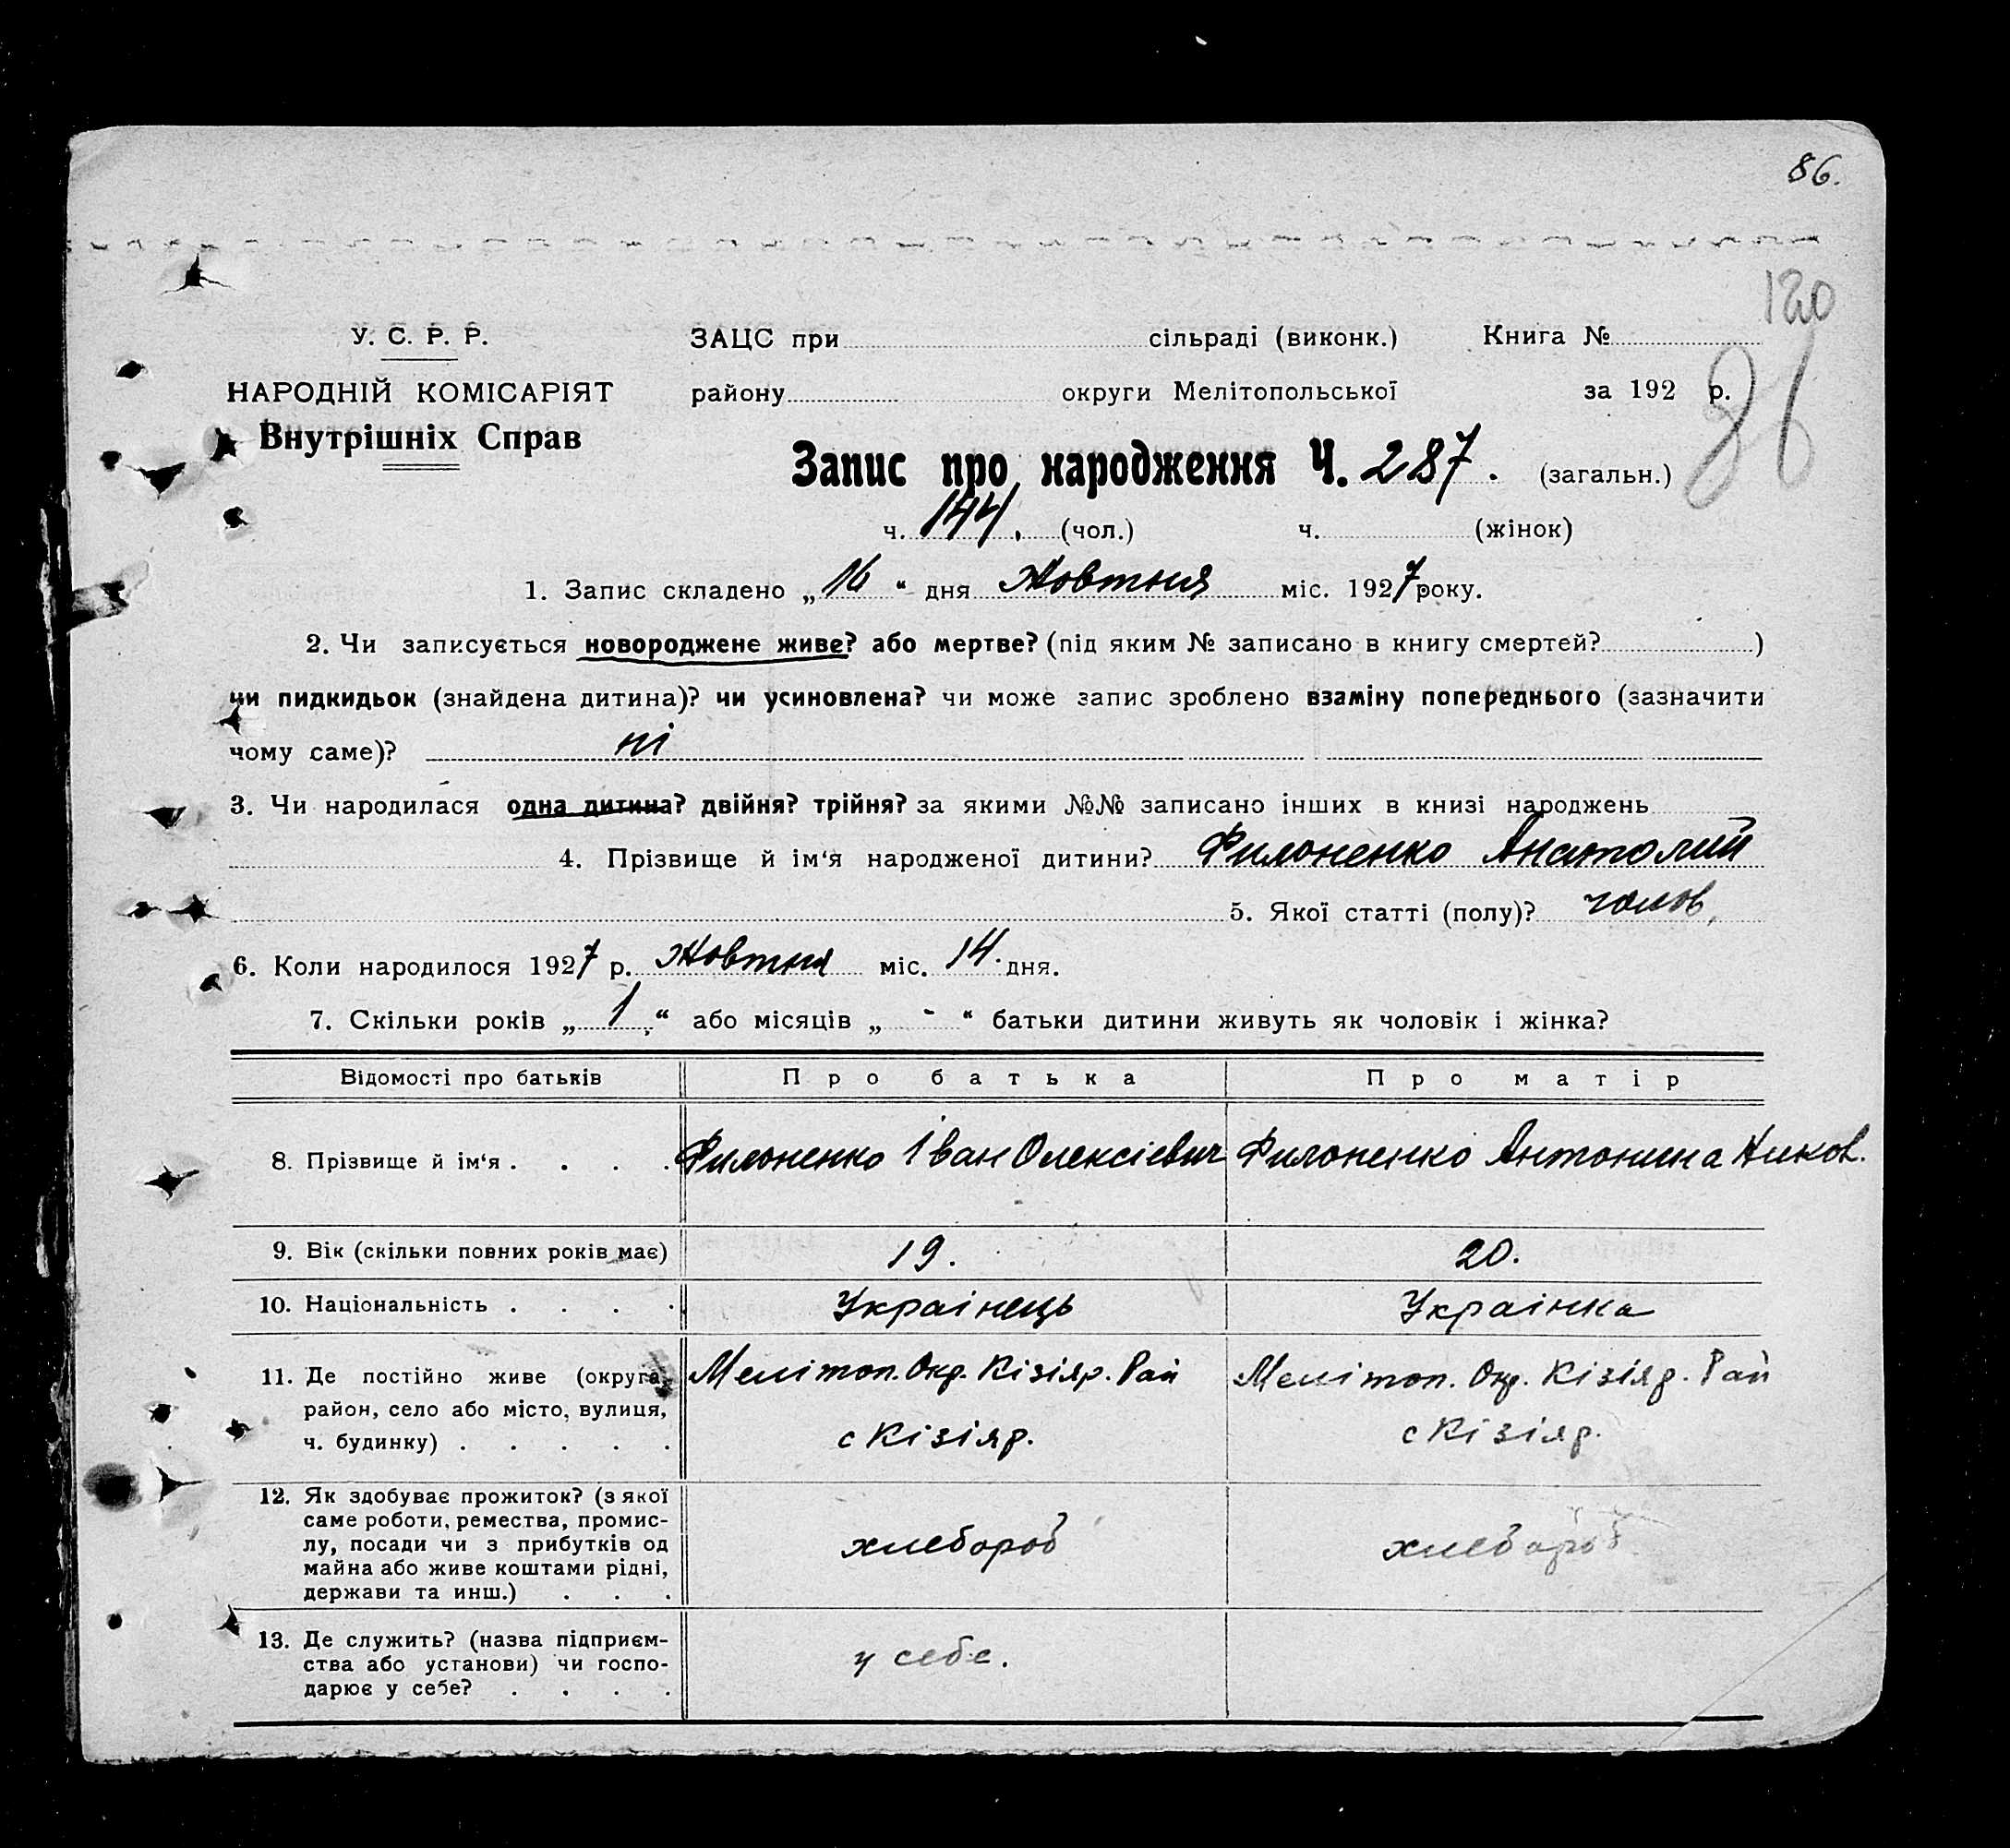 86.
120
86
У. С. Р. Р.
НАРОДНІЙ КОМІСАРІЯТ
Внутрішніх Справ
ЗАЦС при сільраді (виконк.) Книга №
району округи Мелітопольської за 192 р.
Запис про народження Ч. 287. (загальн.)
ч. 144. (чол.) ч. (жінок)
1. Запис складено „16“ дня Жовтня міс. 1927 року.
2. Чи записується новороджене живе? або мертве? (під яким № записано в книгу смертей? )
чи пидкидьок (знайдена дитина)? чи усиновлена? чи може запис зроблено взаміну попереднього (зазначити
чому саме)? ні
3. Чи народилася одна дитина? двійня? трійня? за якими №№ записано інших в книзі народжень
4. Прізвище й ім‘я народженої дитини? Филоненко Анатолий
5. Якої статті (полу)? чолов.
6. Коли народилося 1927 р. Жовтня міс. 14. дня.
7. Скільки років „1“ або місяців „-“ батьки дитини живуть як чоловік і жінка?
Відомості про батьків Про батька Про матір
8. Прізвище й ім‘я . . . . Филоненко Іван Олексієвич Филоненко Антонина Ников.
9. Вік (скільки повних років має) 19. 20.
10. Національність . . . . Украінець Украінка
11. Де постійно живе (округа, Мелітоп. Окр. Кізіяр. Рай Мелітоп. Окр. Кізіяр. Рай
район, село або місто, вулиця,
ч. будинку) . . . . . с Кізіяр. с Кізіяр.
12. Як здобуває прожиток? (з якої
саме роботи, ремества, промис-
лу, посади чи з прибутків од хлебороб хлебороб
майна або живе коштами рідні,
держави та инш.) . . .
13. Де служить? (назва підприєм-
ства або установи) чи госпо- у себе.
дарює у себе? . . . .